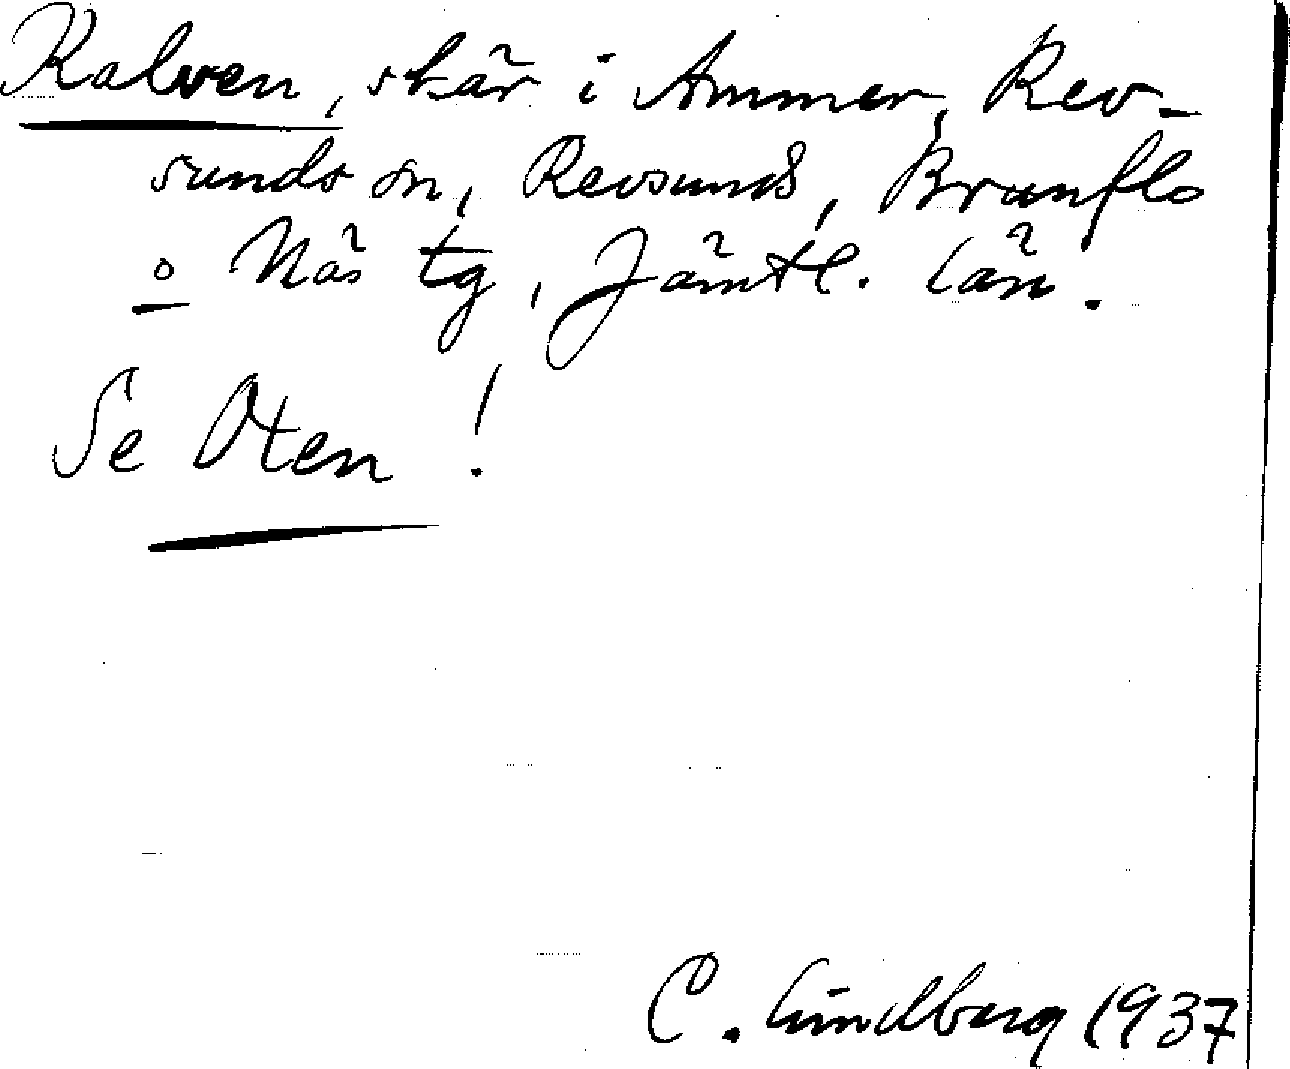 Kalven, skär i Ammer, Rev-
sunds sn, Revsunds, Brunflo
o Näs tg, Jämtl. län.
Se Oten!
C. Lindberg 1937